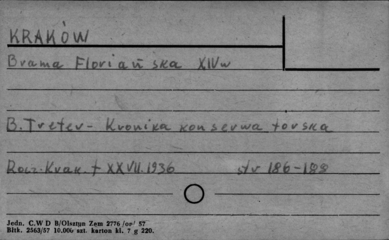 KRAKÓW
Brama Floriańska XIV w
B. Treter - Kronika konserwatorska
Rocz. Krak. t XXVII. 1936 str 186-188
Jedn. C. W D B/Olsztyn Zam 2776 /or/ 57
Bltk. 2563/57 10.000 szt. karton kl. 7 g 220.